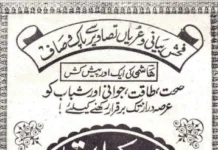 فحش بیانی و عریاں تصاویر سے پاک و صاف
ہاشمی کی ایک اور پیش کش
صحت، طاقت، جوانی اور شباب کو
عرصہ دراز تک برقرار رکھنے کیلئے!